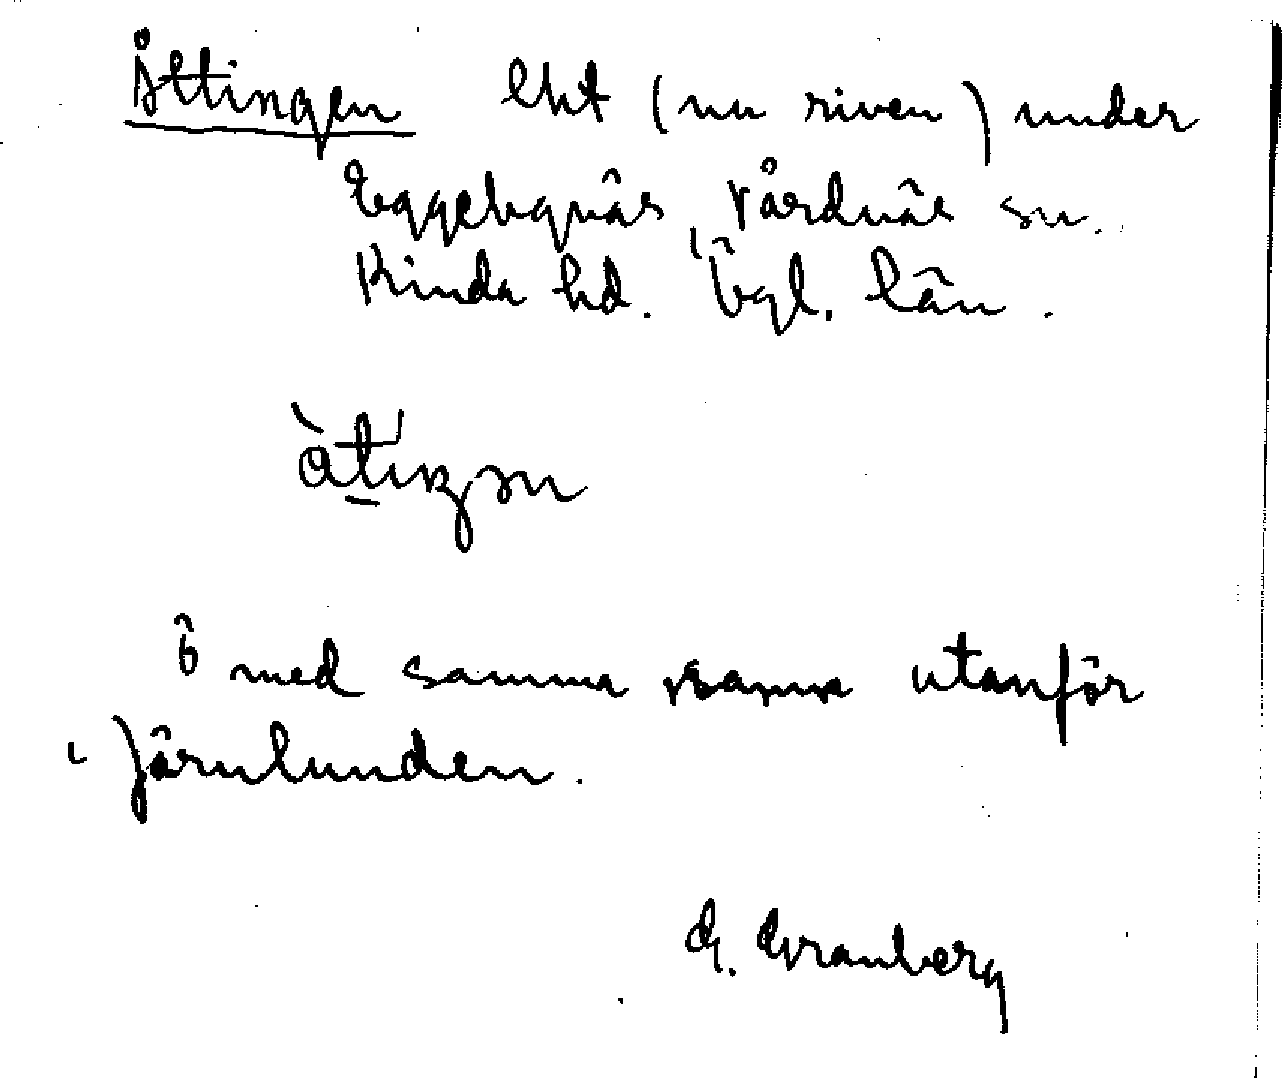 Åttingen lht (nu riven) under
Eggebynäs, Vårdnäs sn.
Kinda hd. Ögl. län.
Ö med samma namn utanför
i Järnlunden.
G. Granberg